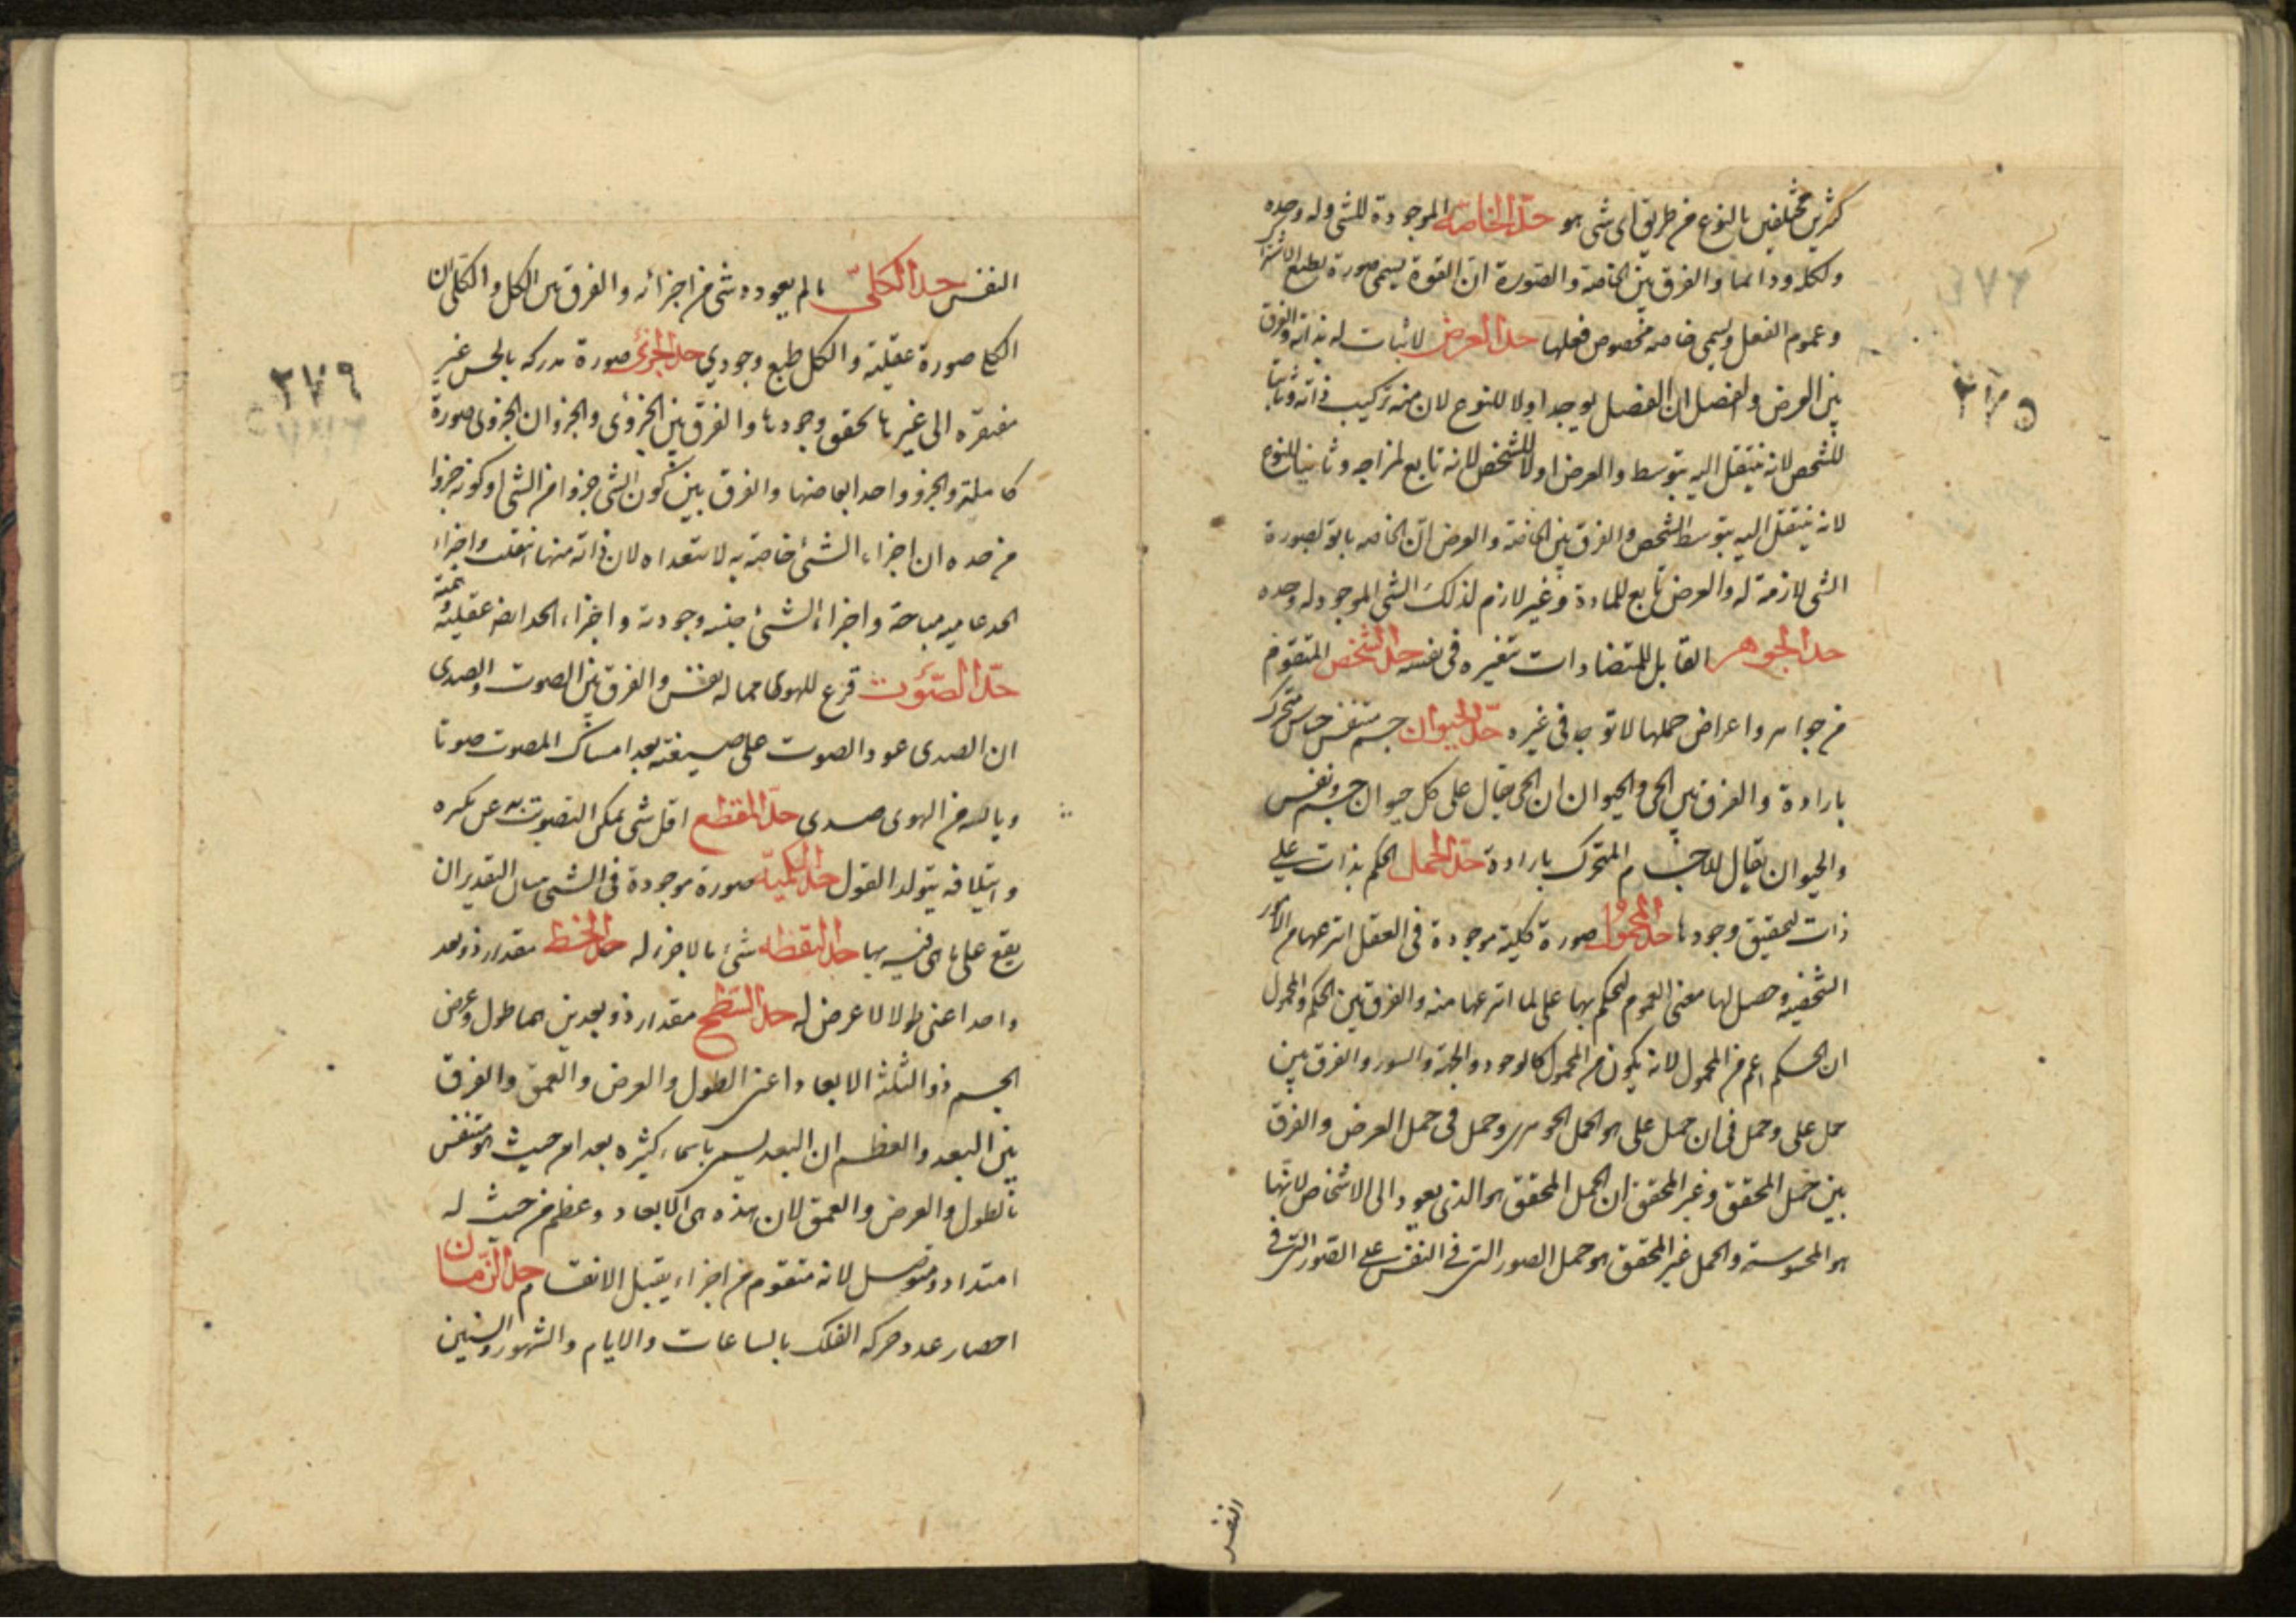 كثيرين مختلفين بالنوع من طريق اى شى هو حد الخاصة الموجودة للشى وله وحده
ولكله ودائما والفرق بين الخاصة والصورة ان القوة يسمى صورة
وعموم الفعل ويسمى خاصة مخصوص فعلها حد العرض لاثبات له بذاته والفرق
بين العرض والفصل ان الفصل يوجد اولا للنوع لان منه تركيب ذاته وثانيا
للشخص لانه ينتقل اليه بتوسط والعرض اولا للشخص لانه تابع لمزاجه وثانيا للنوع
لانه ينتقل اليه بتوسط الشخص والفرق بين الخاصة والعرض ان الخاصه تابع لصورة
الشى لازمة له والعرض تابع للمادة وغير لازم لذلك الشى الموجود له وحده
حد الجوهر القابل للمتضادات بتغيره فى نفسه حد الشخص المتقوم
من جواهر واعراض حملها لا توجد فى غيره حد الحيوان جسم متنفس حساس متحرك
بارادة والفرق بين الحى والحيوان ان الحى يقال على كل حيوان جسم ونفس
والحيوان يقال للجسم المتحرك بارادة حد الحمل الحكم بذات على
ذات لتحقيق وجودها حد المحمول صورة كلية موجودة فى العقل انتزعها من الامور
الشخصية وحصل لها معنى العموم لتحكم بها على ما انتزعها منه والفرق بين الحكم والمحمول
ان الحكم اعم من المحمول لانه يكون من المحمول كالوجود والجهة والسور والفرق بين
حمل على وحمل فى ان حمل على هو الحمل الجوهرى وحمل فى حمل العرض والفرق
بين حمل المحقق وغير المحقق ان الحمل المحقق هو الذى يعود الى الاشخاص لانها
هو المحسوسة والحمل غير المحقق هو حمل الصور التى فى النفس على الصور التى فى
النفس
٢٧٥
النفس حد الكلى مالم يعوده شى من اجزائه والفرق بين الكل والكلى ان
الكلى صورة عقلية والكل طبع وجودي حد الجزئى صورة مدركه بالحس غير
مفتقره الى غيرها لتحقق وجودها والفرق بين الجزوى والجزو ان الجزوى صورة
كاملة والجزو واحد ابعاضها والفرق بين كون الشى جزوا من الشى او كونه جزوا
من حده ان اجزاء الشئ خاصة به لا تتعداه لان ذاته منها انتقلت واجزاء
الحد عاميه مباحة واجزاء الشئ جنسه وجودية واجزاء الحد ايضا عقلية
حد الصوت قرع للهوى مما له نفس والفرق بين الصوت والصدى
ان الصدى عود الصوت على صيغته بعد امساك المصوت صوتا
وبالسه من الهوى صدى حد المقطع اقل شى يمكن التصويت به عن بكره
وايتلافه يتولد القول حد الكمية صورة موجودة فى الشى التقدير ان
يقع على ما هى فيه بها حد النقطه شئ ما لا جزء له حد الخط مقدار ذو بعد
واحد اعنى طولا لا عرض له حد السطح مقدار ذو بعدين هما طول وعرض
الجسم ذو الثلثة الابعاد اعنى الطول والعرض والعمق والفرق
بين البعد والعظم ان البعد يسمى باسماء كثيره بعد من حيث هو متنفس
بالطول والعرض والعمق لان هذه هى الابعاد وعظم من حيث له
امتداد ومتوصل لانه متقوم من اجزاء يقبل الانقسام حد الزمان
احصار عدد حركه الفلك بالساعات والايام والشهور والسنين
٢٧٩